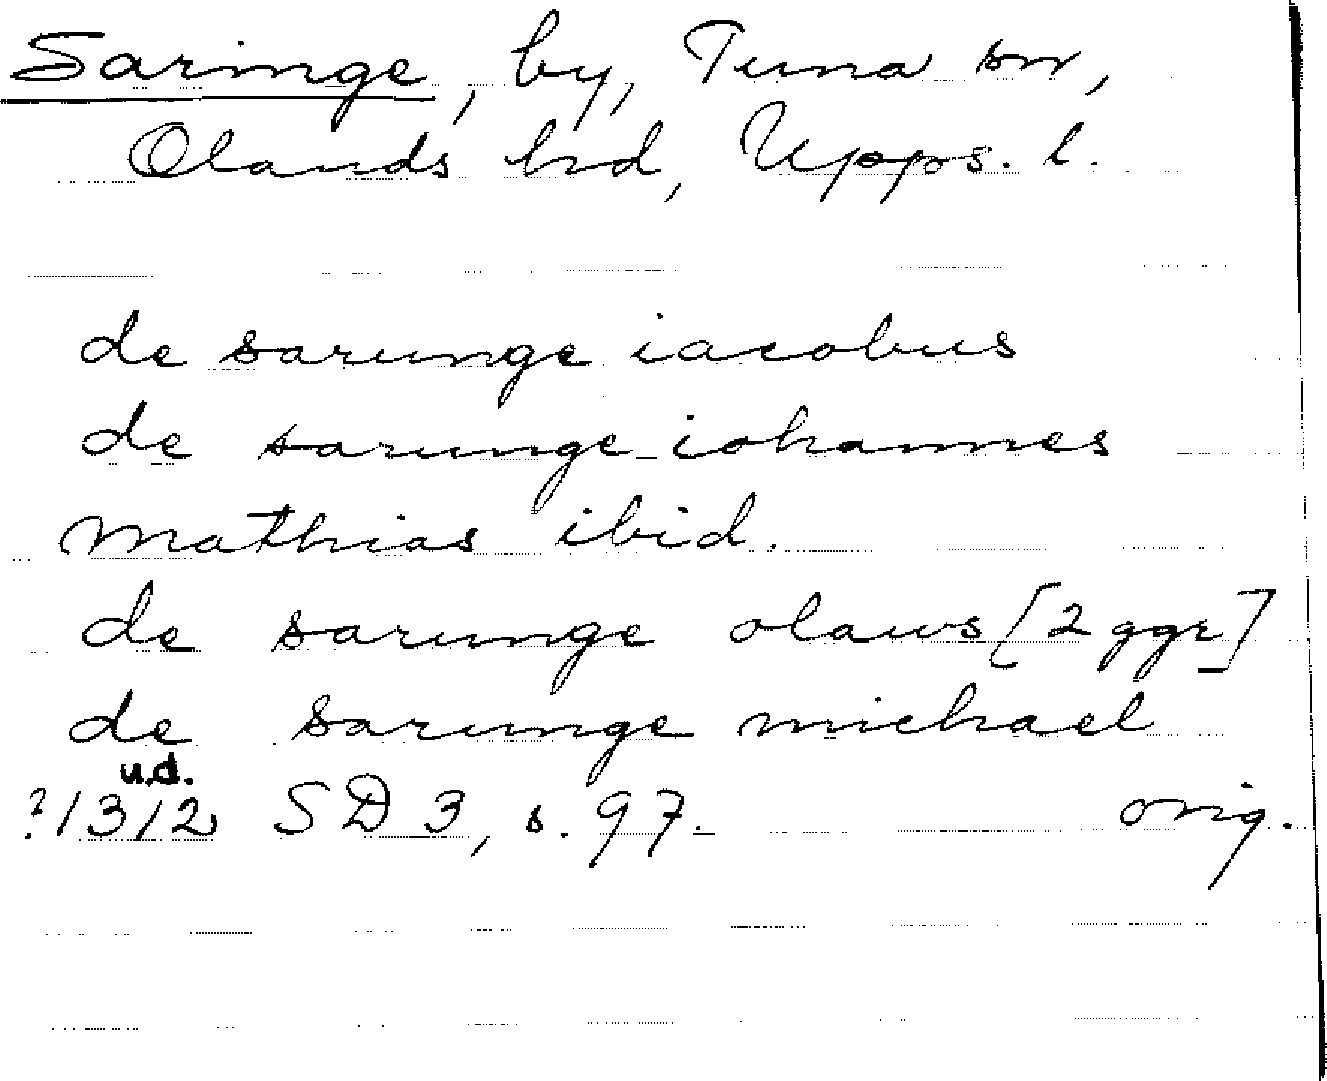 Saringe, by, Tuna sn,
Olands hd, Upps. l.
de sarunge iacobus
de sarunge iohannes
Mathias ibid.
de sarunge olaws [2 ggr]
de sarunge michael
u.d.
?1312 SD 3, s. 97. orig.